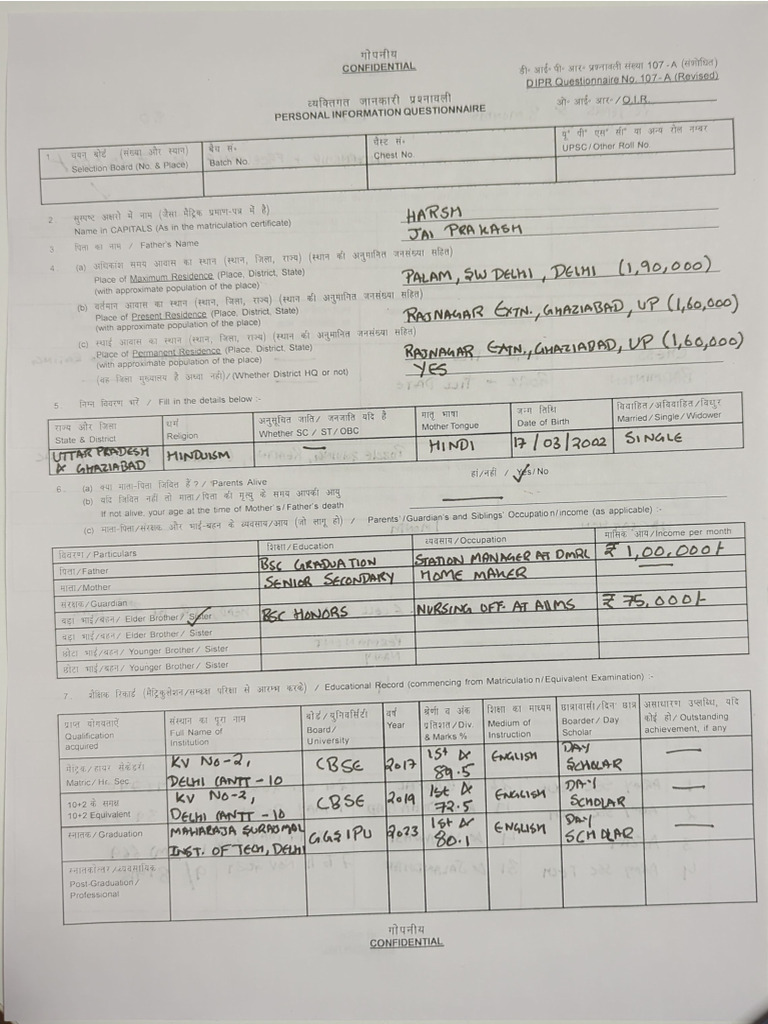 गोपनीय
CONFIDENTIAL
डी॰ आई॰ पी॰ आर॰ प्रश्नावली संख्या 107-A (संशोधित)
DIPR Questionnaire No. 107-A (Revised)
व्यक्तिगत जानकारी प्रश्नावली
PERSONAL INFORMATION QUESTIONNAIRE
ओ॰ आई॰ आर॰ / O.I.R.
1. चयन बोर्ड (संख्या और स्थान)
Selection Board (No. & Place)
बैच सं॰
Batch No.
चैस्ट सं॰
Chest No.
यू॰ पी॰ एस॰ सी॰ या अन्य रोल नम्बर
UPSC/Other Roll No.
2 सुस्पष्ट अक्षरों में नाम (जैसा मैट्रिक प्रमाण-पत्र में है)
Name in CAPITALS (As in the matriculation certificate) HARSH
3 पिता का नाम / Father's Name JAI PRAKASH
4 (a) अधिकांश समय आवास का स्थान (स्थान, जिला, राज्य) (स्थान की अनुमानित जनसंख्या सहित)
Place of Maximum Residence (Place, District, State) PALAM, SW DELHI, DELHI (1,90,000)
(with approximate population of the place)
(b) वर्तमान आवास का स्थान (स्थान, जिला, राज्य) (स्थान की अनुमानित जनसंख्या सहित)
Place of Present Residence (Place, District, State) RAJNAGAR EXTN., GHAZIABAD, UP (1,60,000)
(with approximate population of the place)
(c) स्थाई आवास का स्थान (स्थान, जिला, राज्य) (स्थान की अनुमानित जनसंख्या सहित)
Place of Permanent Residence (Place, District, State) RAJNAGAR EXTN., GHAZIABAD, UP (1,60,000)
(with approximate population of the place)
(यह जिला मुख्यालय है अथवा नहीं)/(Whether District HQ or not) YES
5. निम्न विवरण भरें / Fill in the details below :-
राज्य और जिला
State & District
धर्म
Religion
अनुसूचित जाति/ जनजाति यदि है
Whether SC / ST/OBC
मातृ भाषा
Mother Tongue
जन्म तिथि
Date of Birth
विवाहित/अविवाहित/विधुर
Married/Single/Widower
UTTAR PRADESH
& GHAZIABAD HINDUISM — HINDI 17/03/2002 SINGLE
6. (a) क्या माता-पिता जिवित हैं? / Parents Alive हां/नहीं / Yes/No
(b) यदि जिवित नहीं तो माता/पिता की मृत्यु के समय आपकी आयु
If not alive, your age at the time of Mother's/Father's death
(c) माता-पिता/संरक्षक और भाई-बहन के व्यवसाय/आय (जो लागू हो) / Parents'/Guardian's and Siblings' Occupation/income (as applicable) :-
विवरण / Particulars शिक्षा/Education व्यवसाय/Occupation मासिक आय/Income per month
पिता/Father BSC GRADUATION STATION MANAGER AT DMRC ₹ 1,00,000/-
माता/Mother SENIOR SECONDARY HOME MAKER —
संरक्षक/Guardian
बड़ा भाई/बहन/ Elder Brother/ Sister BSC HONORS NURSING OFF. AT AIIMS ₹ 75,000/-
बड़ा भाई/बहन/ Elder Brother/ Sister
छोटा भाई/बहन/ Younger Brother/ Sister
छोटा भाई/बहन/ Younger Brother/ Sister
7. शैक्षिक रिकार्ड (मैट्रिकुलेशन/समकक्ष परिक्षा से आरम्भ करके) / Educational Record (commencing from Matriculation/Equivalent Examination) :-
प्राप्त योग्यताऐं
Qualification
acquired
संस्थान का पूरा नाम
Full Name of
Institution
बोर्ड/यूनिवर्सिटी
Board/
University
वर्ष
Year
श्रेणी व अंक
प्रतिशत/Div.
& Marks %
शिक्षा का माध्यम
Medium of
Instruction
छात्रावासी/दिन छात्र
Boarder/Day
Scholar
असाधारण उपलब्धि, यदि
कोई हो/Outstanding
achievement, if any
मैट्रिक/हायर सेकेंडरी
Matric/Hr. Sec.
KV NO-2,
DELHI CANTT-10
CBSE 2017
1st &
89.5
ENGLISH
DAY
SCHOLAR
—
10+2 के समक्ष
10+2 Equivalent
KV NO-2,
DELHI CANTT-10
CBSE 2019
1st &
72.5
ENGLISH
DAY
SCHOLAR
—
स्नातक/Graduation
MAHARAJA SURAJMAL
INST. OF TECH, DELHI
GGSIPU 2023
1st &
80.1
ENGLISH
DAY
SCHOLAR
—
स्नातकोत्तर/व्यवसायिक
Post-Graduation/
Professional
गोपनीय
CONFIDENTIAL